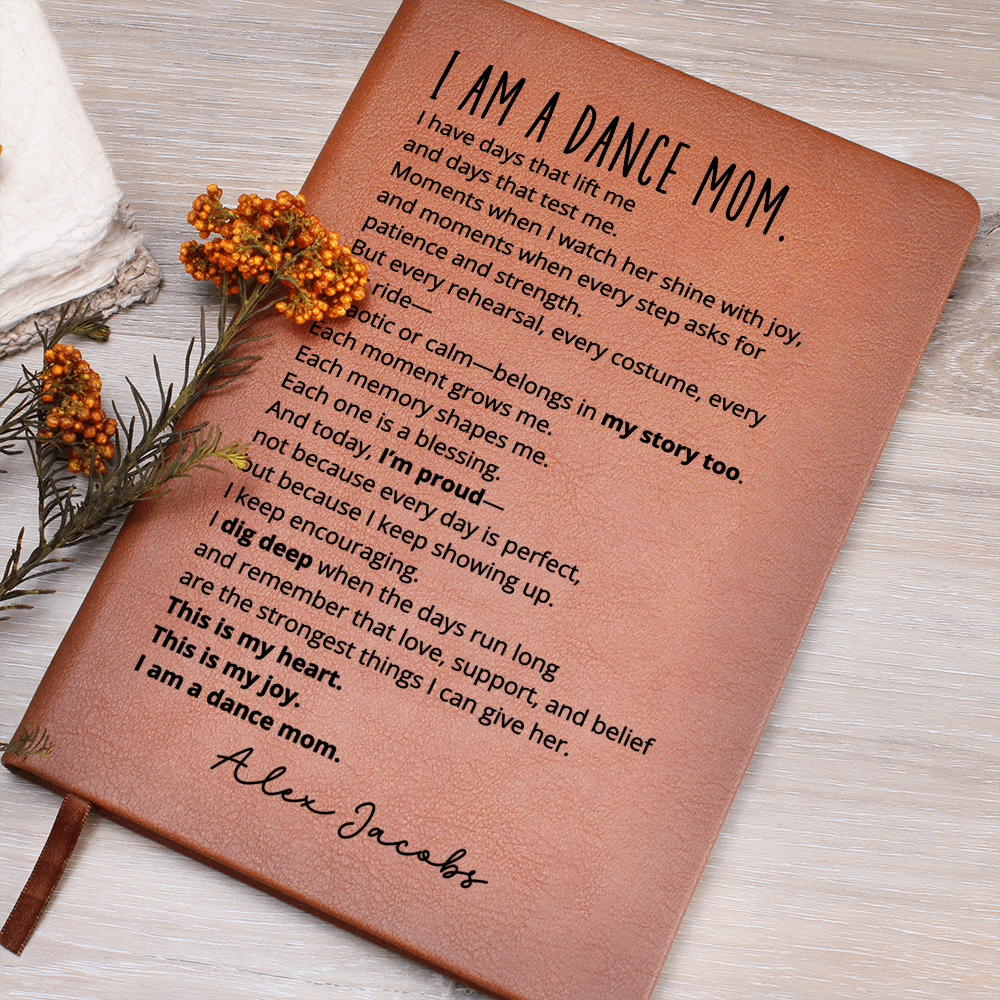 I AM A DANCE MOM.
I have days that lift me
and days that test me.
Moments when I watch her shine with joy,
and moments when every step asks for
patience and strength.
But every rehearsal, every costume, every
ride—
or calm—belongs in my story too.
Each moment grows me.
Each memory shapes me.
Each one is a blessing.
And today, I'm proud—
not because every day is perfect,
but because I keep showing up.
I keep encouraging.
I dig deep when the days run long
and remember that love, support, and belief
are the strongest things I can give her.
This is my heart.
This is my joy.
I am a dance mom.
Alex Jacobs